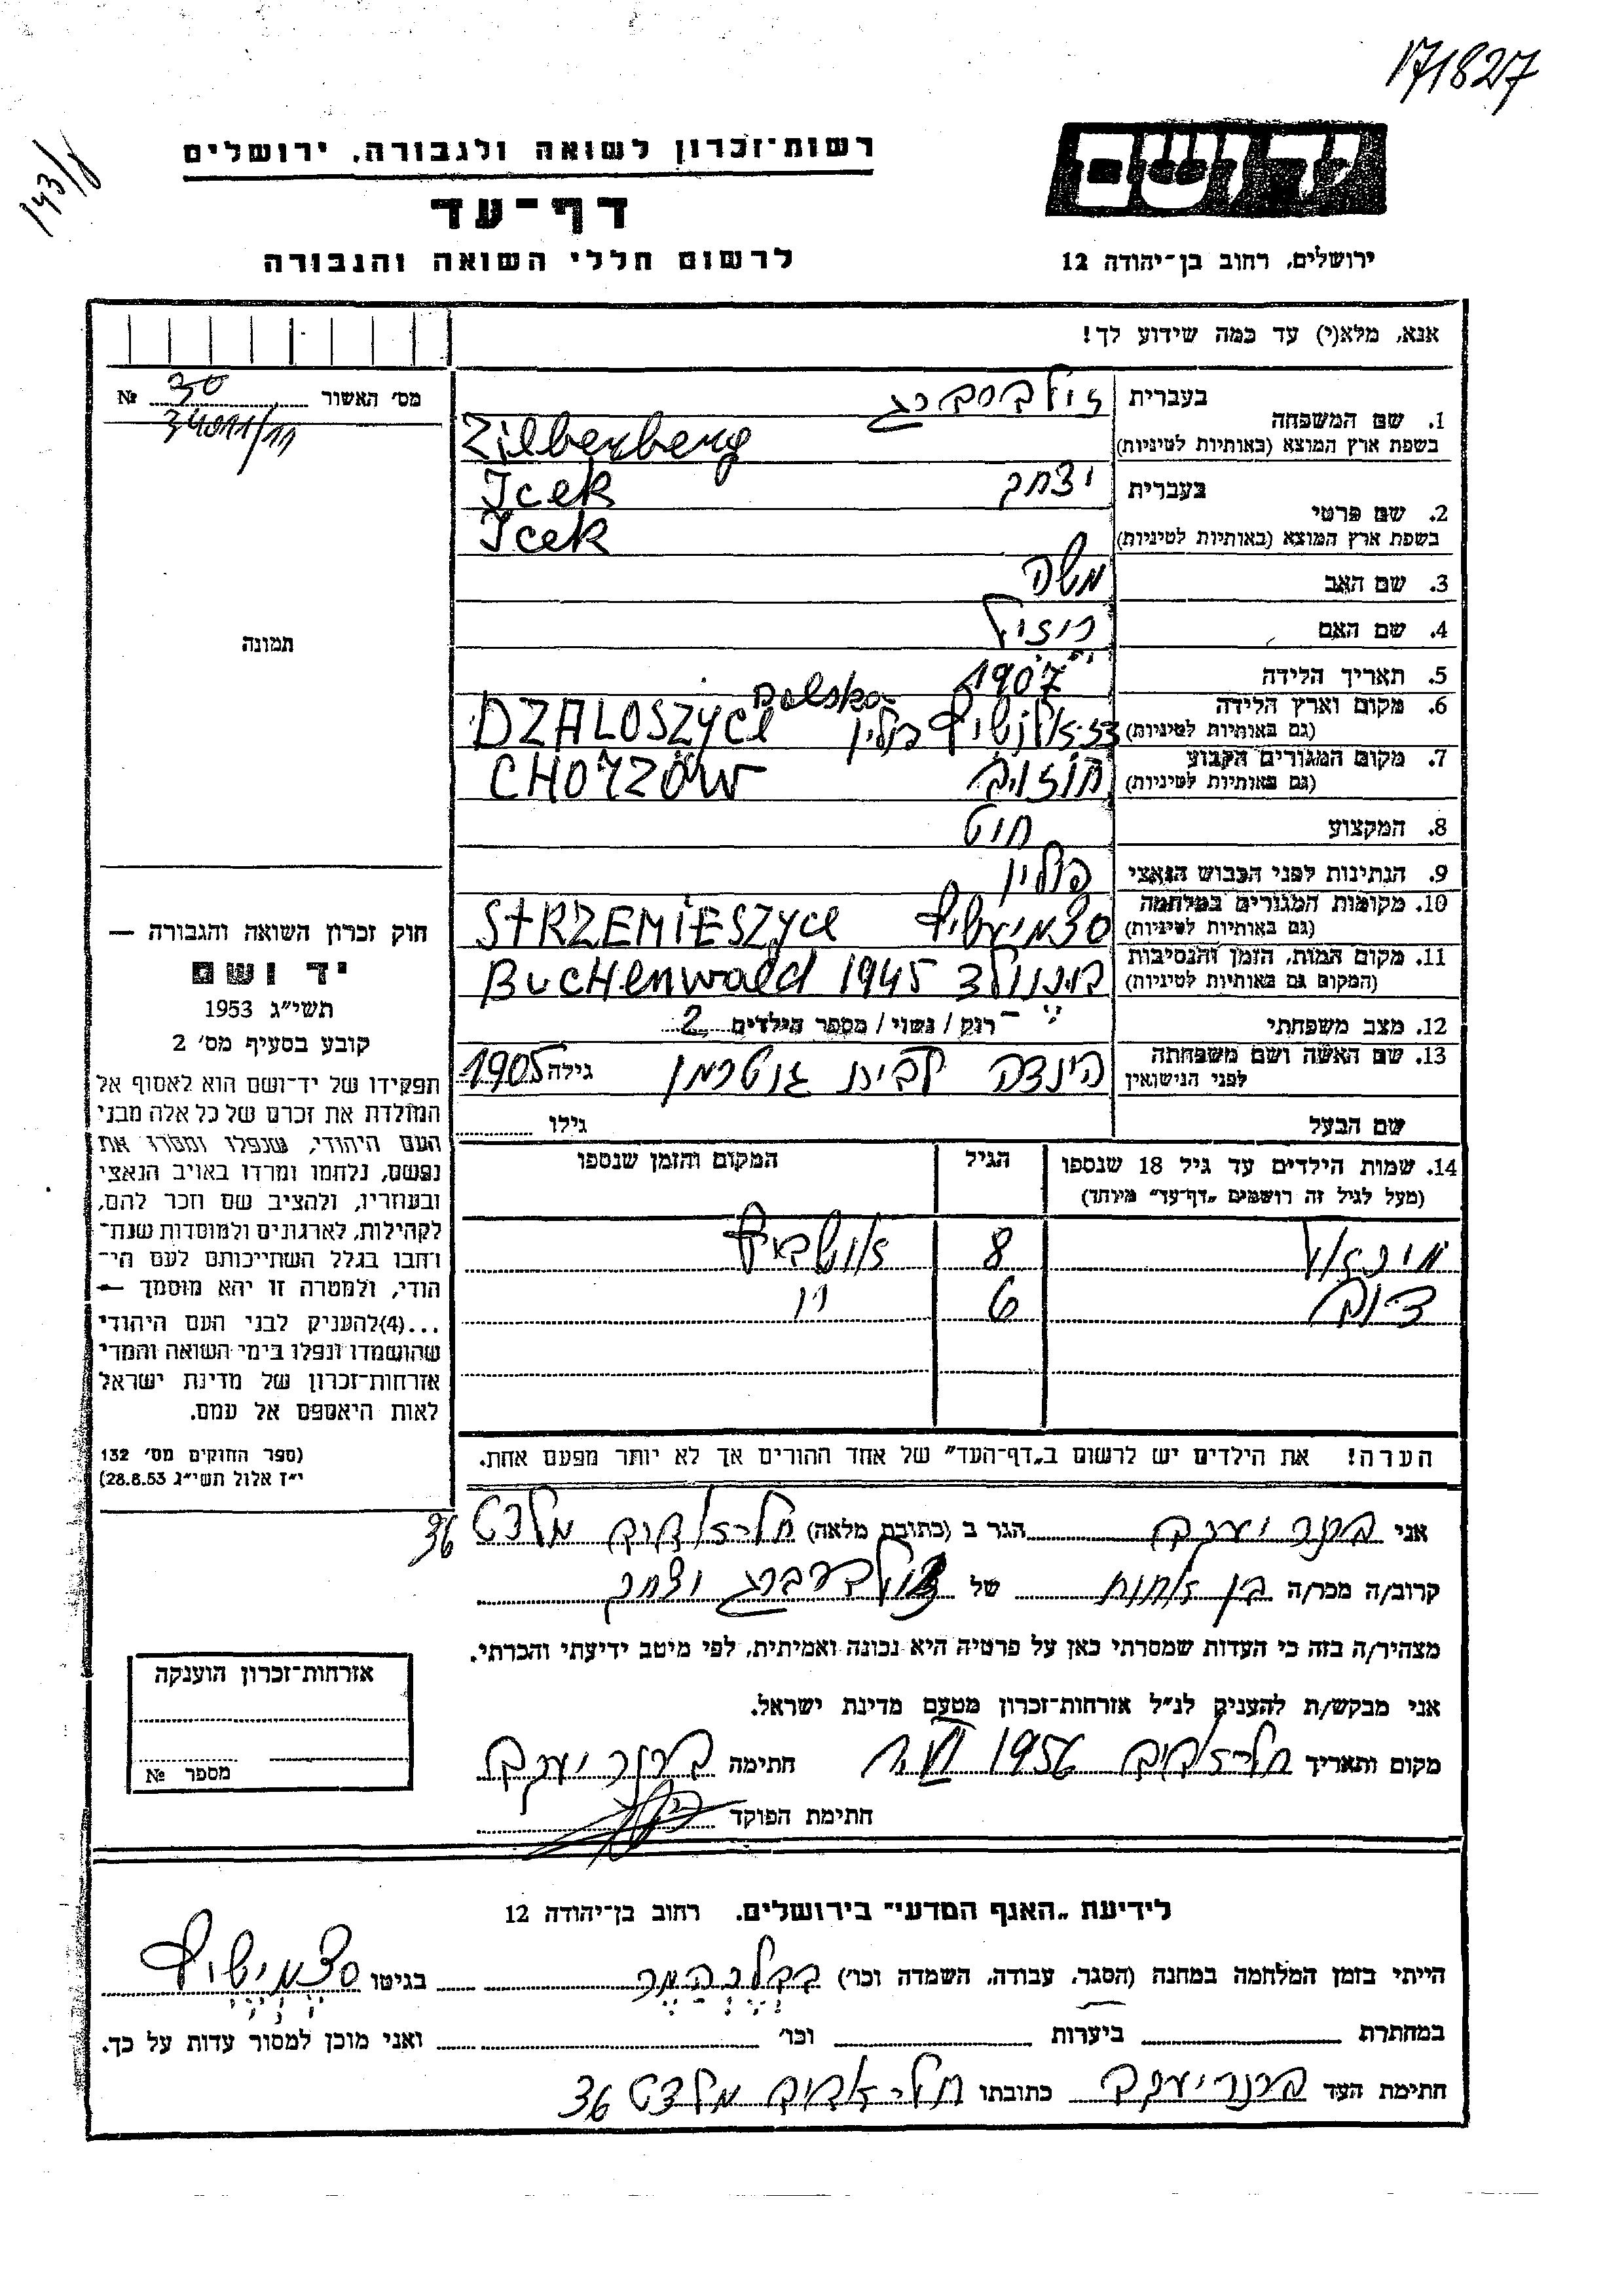 171827
143/
רשות־זכרון לשואה ולגבורה, ירושלים
ידושם
דף־עד
לרשום חללי השואה והגבורה
ירושלים, רחוב בן־יהודה 12
אנא, מלא(י) עד כמה שידוע לך!
מס׳ האשור 30 №
34011/11
תמונה
1. שם המשפחה
בעברית זילברברג
בשפת ארץ המוצא (באותיות לטיניות) Zilberberg
2. שם פרטי
בעברית יצחק Icek
בשפת ארץ המוצא (באותיות לטיניות) Icek
3. שם האב משה
4. שם האם רויזל
5. תאריך הלידה 1907
6. מקום וארץ הלידה פולין Polska
(גם באותיות לטיניות) DZALOSZYCE
7. מקום המגורים הקבוע
(גם באותיות לטיניות) CHORZÓW
8. המקצוע חיט
9. הנתינות לפני הכבוש הנאצי פולין
10. מקומות המגורים במלחמה
(גם באותיות לטיניות) STRZEMIESZYCE
11. מקום המות, הזמן והנסיבות
(המקום גם באותיות לטיניות) בוכנולד BUCHENWALD 1945
12. מצב משפחתי רוק / נשוי / מספר הילדים 2
13. שם האשה ושם משפחתה
לפני הנישואין הינדה לבית גוטרמן גילה 1905
שם הבעל גילו
14. שמות הילדים עד גיל 18 שנספו הגיל המקום והזמן שנספו
(מעל לגיל זה רושמים „דף־עד״ מיוחד)
8 אושביץ
6 ״
הערה! את הילדים יש לרשום ב„דף־העד״ של אחד ההורים אך לא יותר מפעם אחת.
חוק זכרון השואה והגבורה —
יד ושם
תשי״ג 1953
קובע בסעיף מס׳ 2
תפקידו של יד־ושם הוא לאסוף אל
המולדת את זכרם של כל אלה מבני
העם היהודי, שנפלו ומסרו את
נפשם, נלחמו ומרדו באויב הנאצי
ובעוזריו, ולהציב שם וזכר להם,
לקהילות, לארגונים ולמוסדות שנח־
רחבו בגלל השתייכותם לעם הי־
הודי, ולמטרה זו יהא מוסמך —
...(4)להעניק לבני העם היהודי
שהושמדו ונפלו בימי השואה והמרי
אזרחות־זכרון של מדינת ישראל
לאות היאספם אל עמם.
(ספר החוקים מס׳ 132
י״ז אלול תשי״ג 28.8.53)
אני יעקב הגר ב (כתובת מלאה) תל־אביב 36
קרוב/ה מכר/ה בן אחות של זילברברג יצחק
מצהיר/ה בזה כי העדות שמסרתי כאן על פרטיה היא נכונה ואמיתית, לפי מיטב ידיעתי והכרתי.
אני מבקש/ת להעניק לנ״ל אזרחות־זכרון מטעם מדינת ישראל.
מקום ותאריך תל־אביב 1956 חתימה יעקב
חתימת הפוקד
אזרחות־זכרון הוענקה
מספר №
לידיעת „האגף המדעי״ בירושלים. רחוב בן־יהודה 12
הייתי בזמן המלחמה במחנה (הסגר, עבודה, השמדה וכו׳) בגיטו
במחתרת ביערות וכו׳ ואני מוכן למסור עדות על כך.
חתימת העד יעקב כתובתו תל־אביב 36